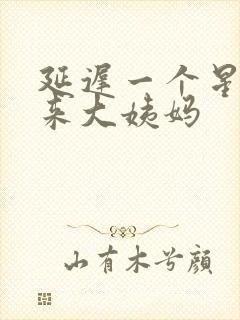 延遲一个星
来大姨妈
山有木兮顔